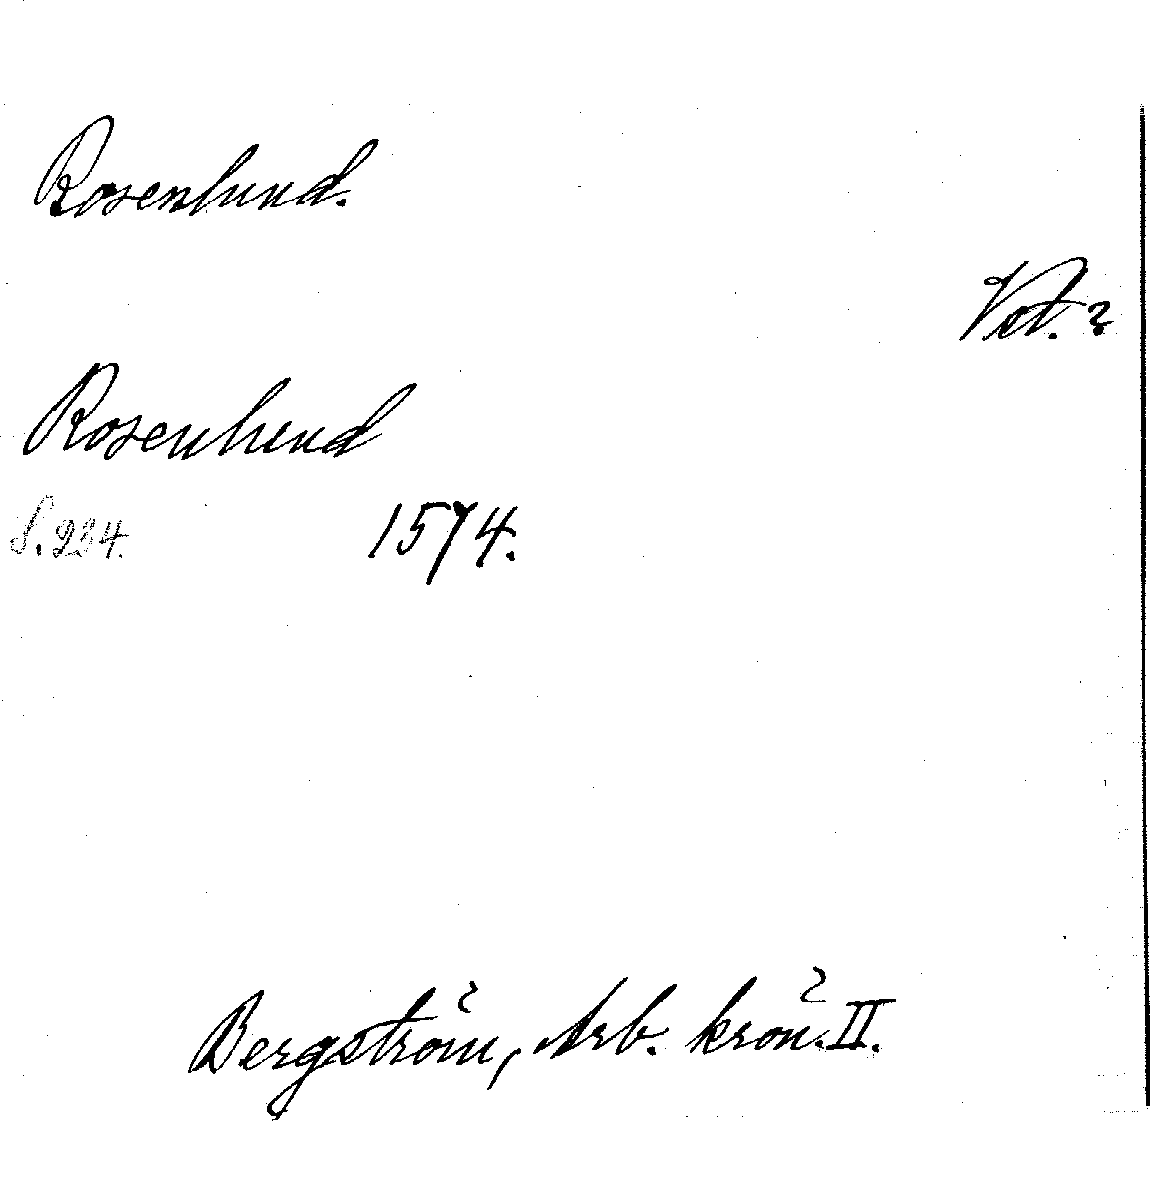 Rosenlund.
Vet. ?
Rosenlund
S. 234. 1574.
Bergström, Arb. krön. II.